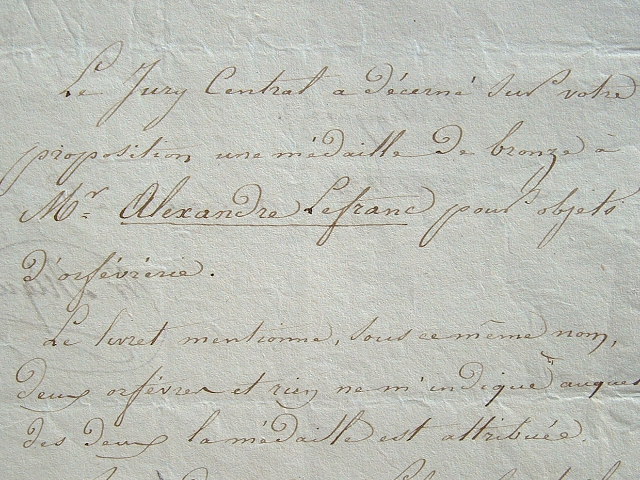 Le Jury Central a décerné sur votre
proposition une médaille de bronze à
Mr. Alexandre Lefranc pour objets
d'orfévrérie.
Le livret mentionne, sous ce même nom,
deux orfévres et rien ne m'indique auquel
des deux la médaille est attribuée.